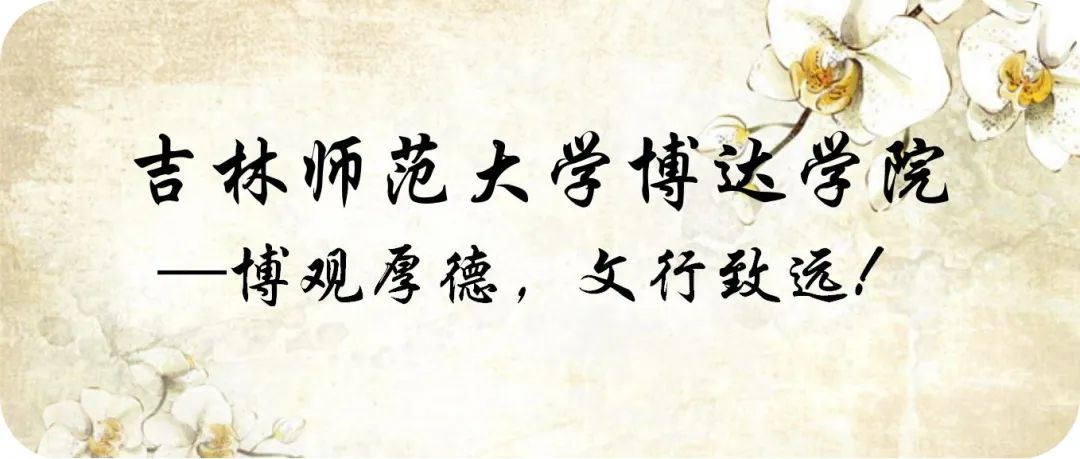 吉林师范大学博达学院
—博观厚德，文行致远！